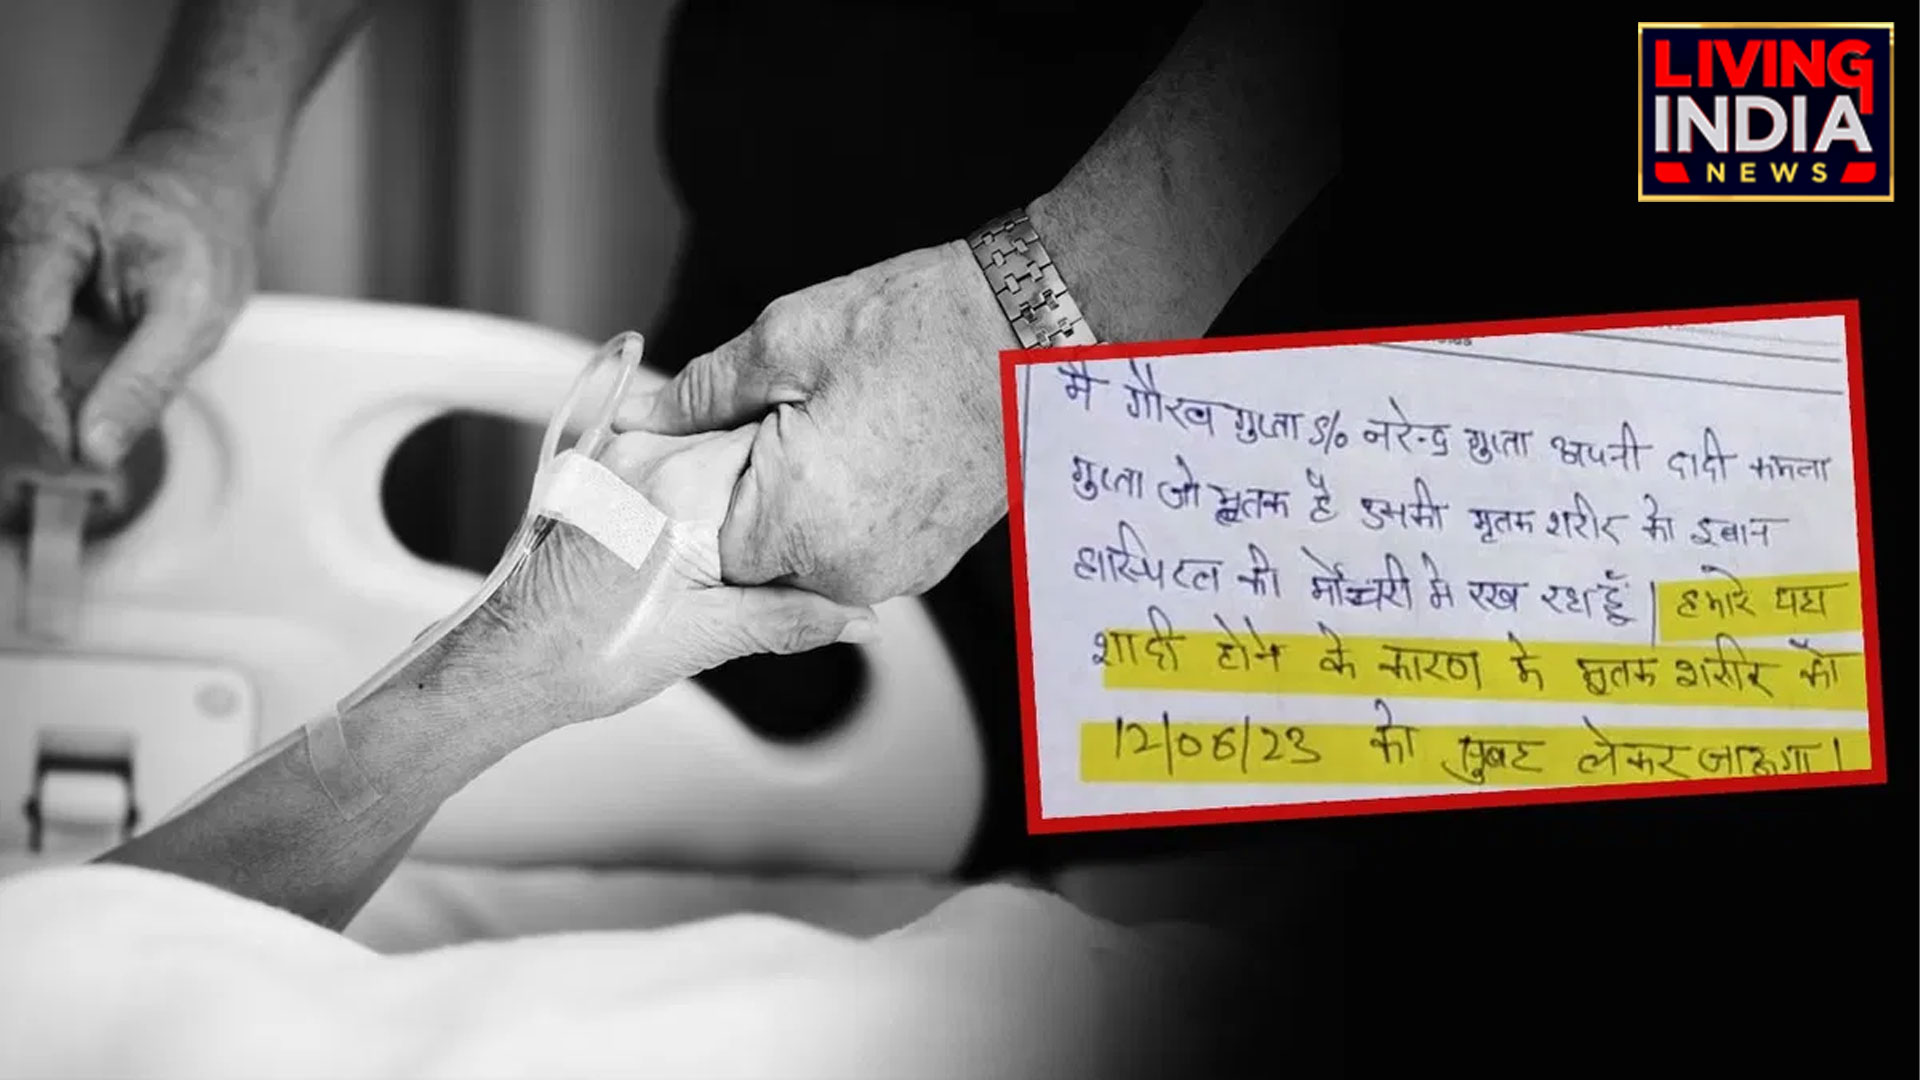 LIVING
INDIA
NEWS
मै गौरव गुप्ता S/o नरेन्द्र गुप्ता अपनी दादी कमला
गुप्ता जो मृतक है उसकी मृतक शरीर को
हास्पिटल की मोंचरी मे रख रहा हूँ। हमारे यहा
शादी होने के कारण मे मृतक शरीर को
12/06/23 को सुबह लेकर जाऊगा।